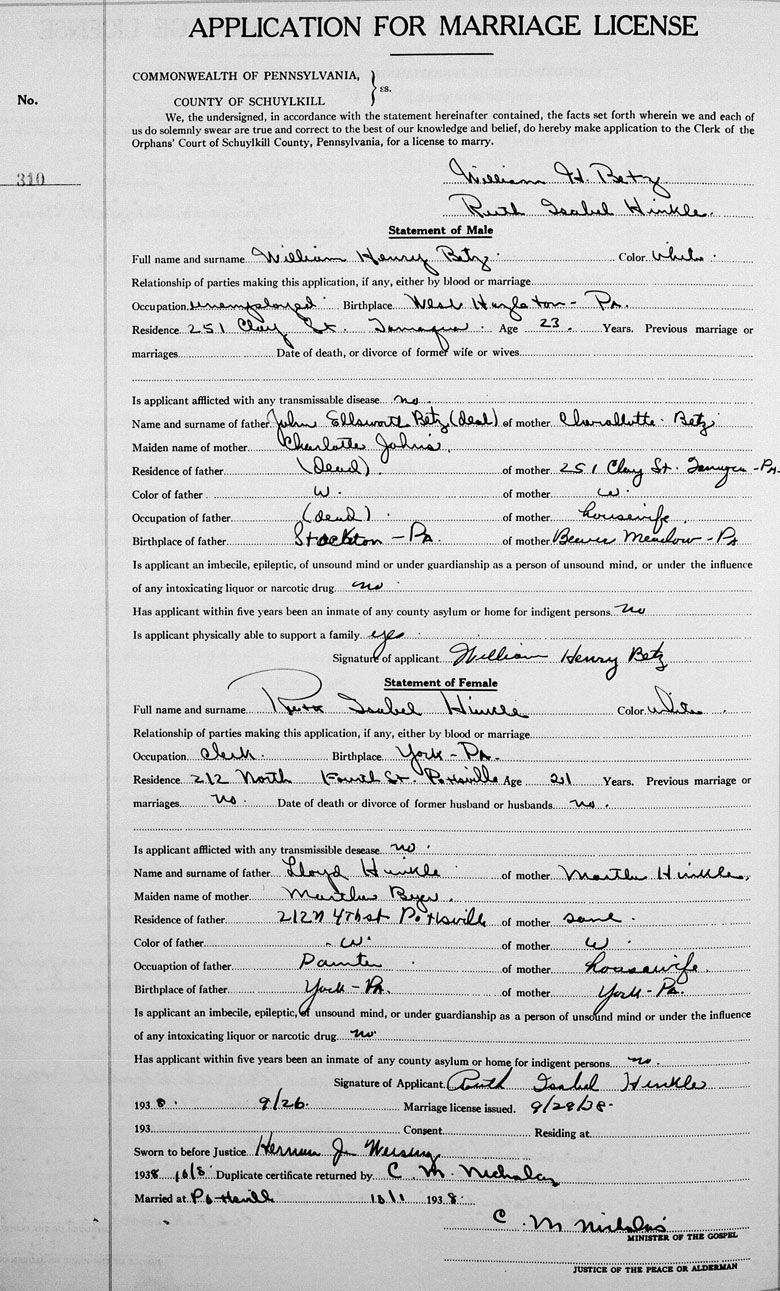 APPLICATION FOR MARRIAGE LICENSE
COMMONWEALTH OF PENNSYLVANIA,
ss.
No.
COUNTY OF SCHUYLKILL
We, the undersigned, in accordance with the statement hereinafter contained, the facts set forth wherein we and each of
us do solemnly swear are true and correct to the best of our knowledge and belief, do hereby make application to the Clerk of the
Orphans' Court of Schuylkill County, Pennsylvania, for a license to marry.
310
William H. Betz
Ruth Isabel Hinkle.
Statement of Male
Full name and surname William Henry Betz Color White
Relationship of parties making this application, if any, either by blood or marriage
Occupation unemployed Birthplace West Hazleton - Pa.
Residence 251 Clay St. Tamaqua Age 23. Years. Previous marriage or
marriages Date of death, or divorce of former wife or wives
Is applicant afflicted with any transmissable disease no.
Name and surname of father John Ellsworth Betz (dead) of mother Charollotte Betz
Maiden name of mother Charlotte Johns.
Residence of father (dead) of mother 251 Clay St. Tamaqua - Pa.
Color of father W. of mother W.
Occupation of father (dead) of mother housewife.
Birthplace of father Stockton - Pa. of mother Beaver Meadow - Pa
Is applicant an imbecile, epileptic, of unsound mind or under guardianship as a person of unsound mind, or under the influence
of any intoxicating liquor or narcotic drug no
Has applicant within five years been an inmate of any county asylum or home for indigent persons no
Is applicant physically able to support a family yes
Signature of applicant William Henry Betz
Statement of Female
Full name and surname Ruth Isabel Hinkle Color White
Relationship of parties making this application, if any, either by blood or marriage
Occupation clerk. Birthplace York - Pa.
Residence 212 North Fourth St. Pottsville Age 21 Years. Previous marriage or
marriages no Date of death or divorce of former husband or husbands no.
Is applicant afflicted with any transmissible desease no.
Name and surname of father Lloyd Hinkle of mother Martha Hinkle,
Maiden name of mother Martha Byer.
Residence of father 212 N 4th St Pottsville of mother same.
Color of father W. of mother W.
Occuaption of father Painter of mother housewife.
Birthplace of father York - Pa. of mother York - Pa.
Is applicant an imbecile, epileptic, of unsound mind, or under guardianship as a person of unsound mind or under the influence
of any intoxicating liquor or narcotic drug no.
Has applicant within five years been an inmate of any county asylum or home for indigent persons no.
Signature of Applicant Ruth Isabel Hinkle
1938. 9/26. Marriage license issued. 9/29/38.
193 Consent Residing at
Sworn to before Justice Herman J.
1938 10/8 Duplicate certificate returned by C. M. Nicholas
Married at Pottsville 10/1 1938.
C M Nicholas
MINISTER OF THE GOSPEL
JUSTICE OF THE PEACE OR ALDERMAN